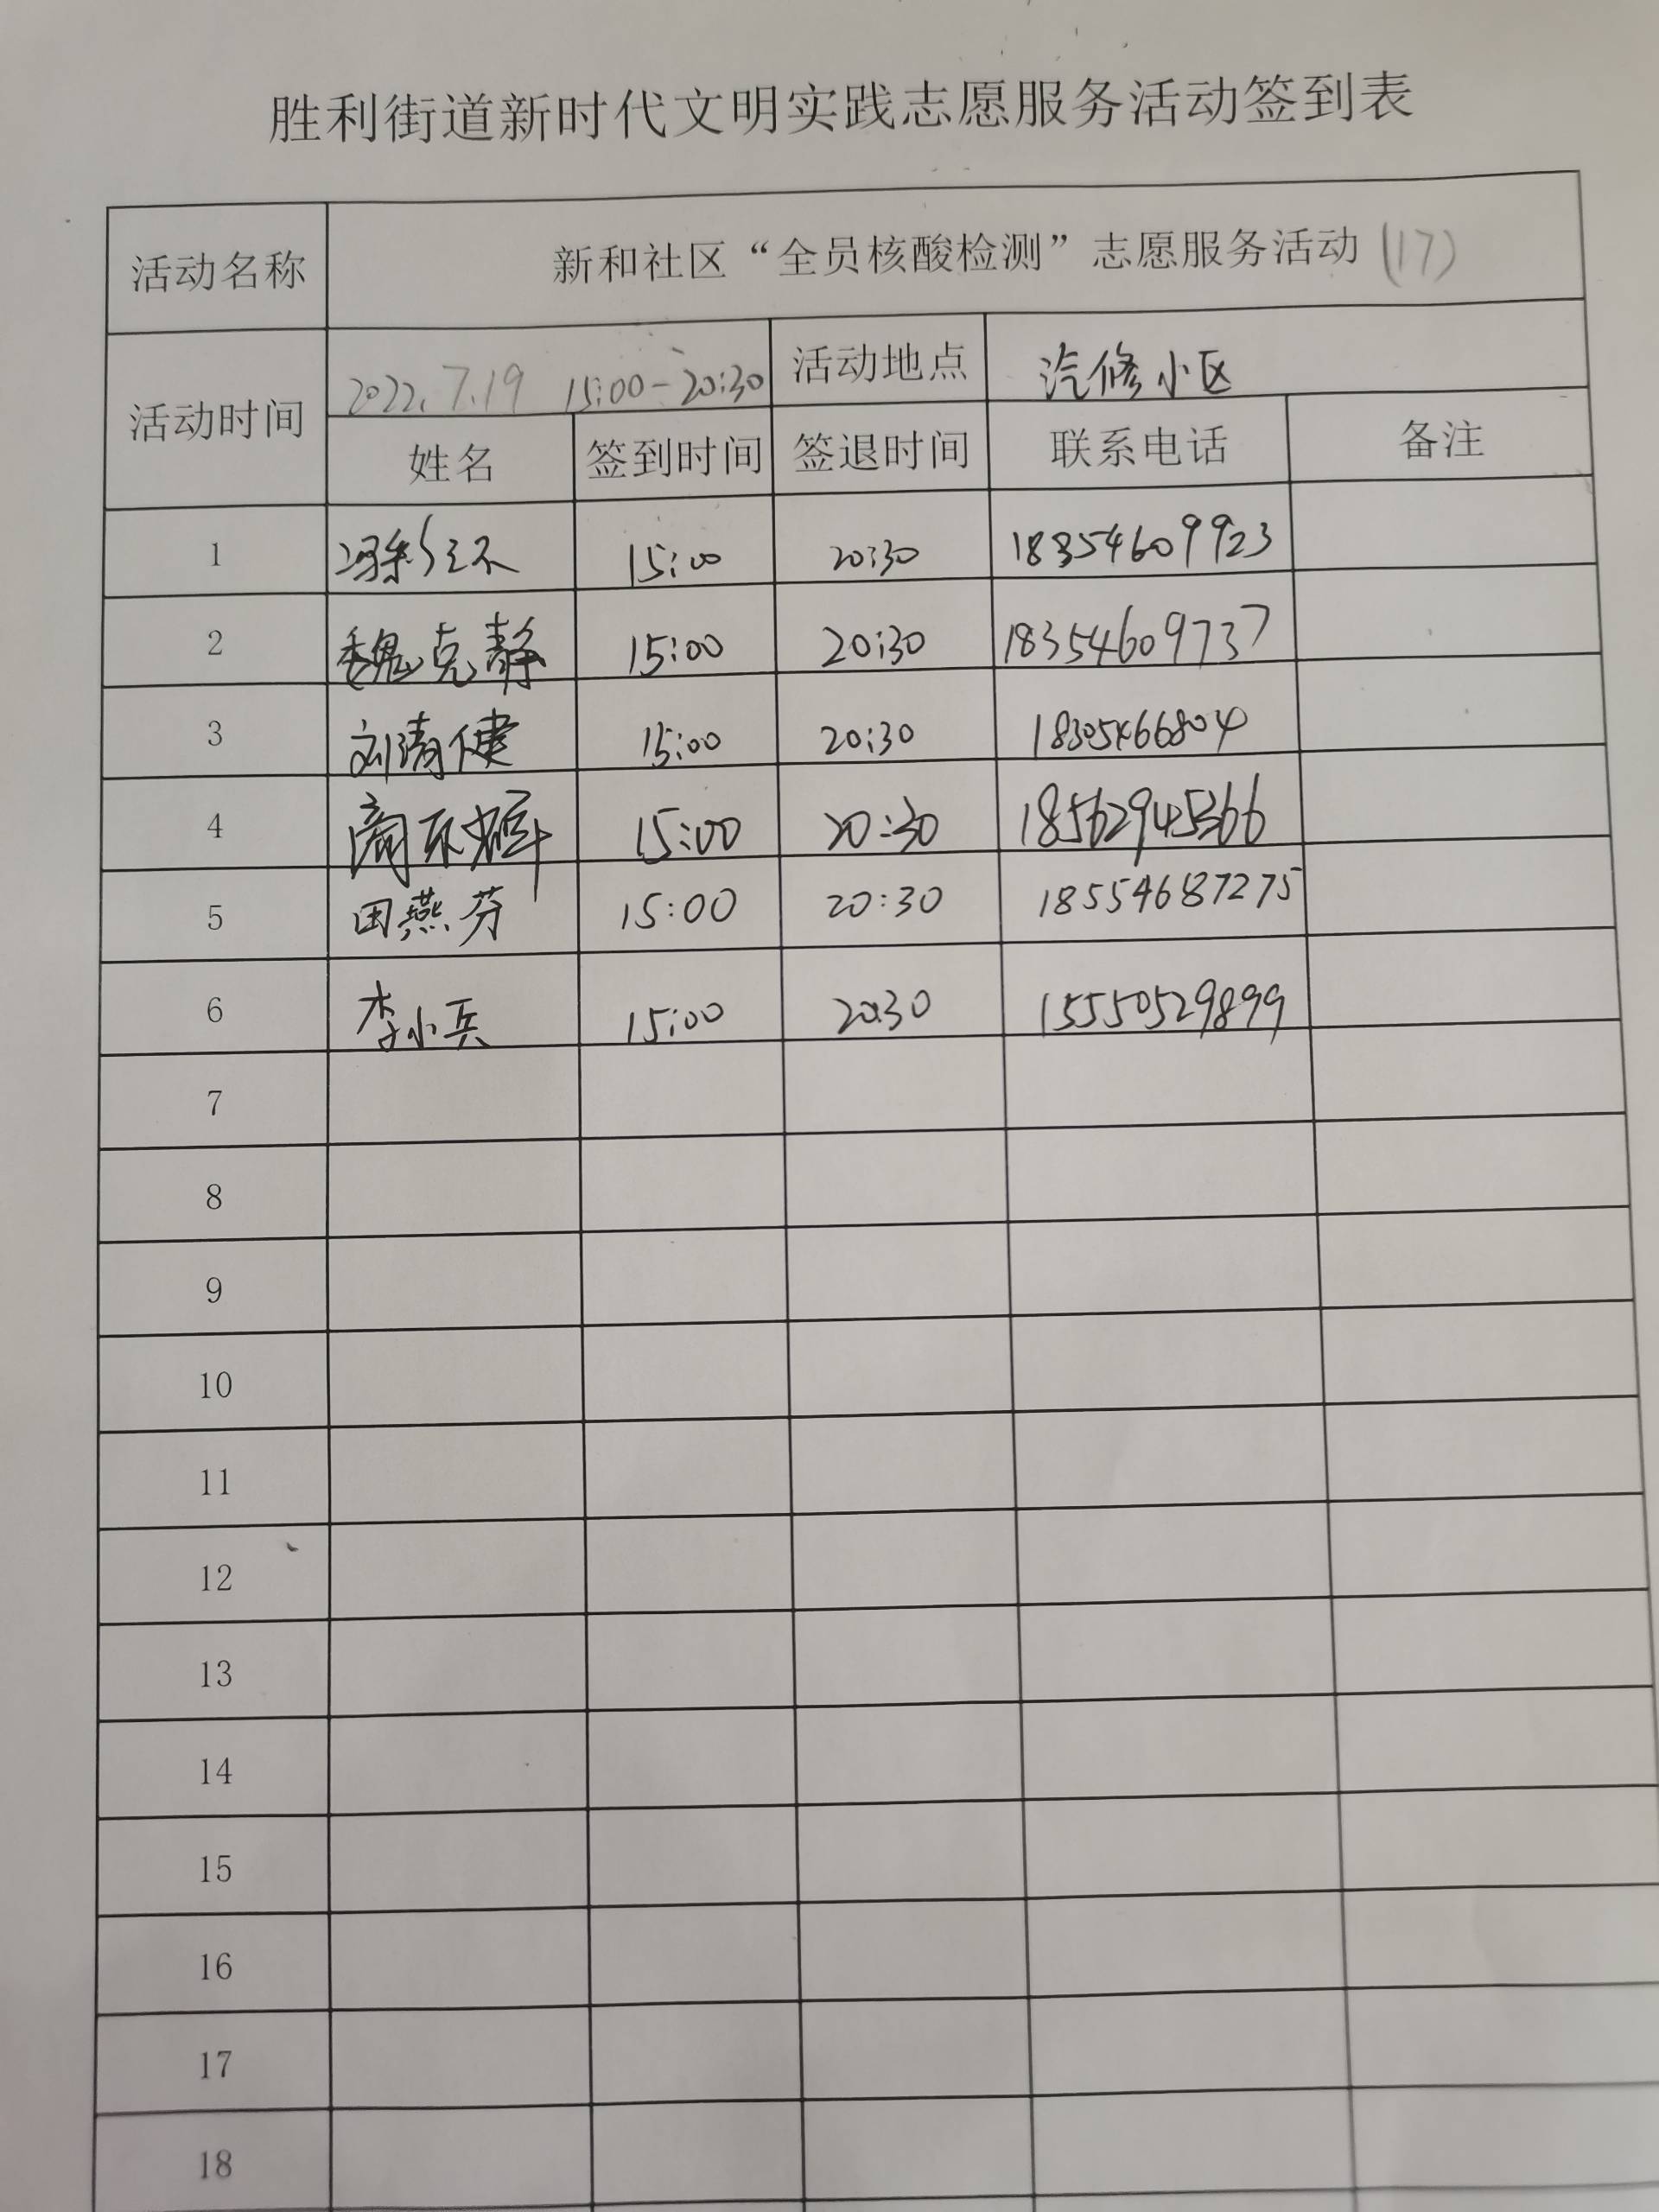 胜利街道新时代文明实践志愿服务活动签到表
活动名称 新和社区“全员核酸检测”志愿服务活动 (17)
活动时间 2022.7.19 15:00-20:30 活动地点 汽修小区
姓名 签到时间 签退时间 联系电话 备注
1 冯彩 15:00 20:30 18354609923
2 魏克静 15:00 20:30 18354609737
3 刘清健 15:00 20:30 18305466804
4 15:00 20:30 18562945366
5 田燕芬 15:00 20:30 18554687275
6 李小兵 15:00 20:30 15550529899
7
8
9
10
11
12
13
14
15
16
17
18